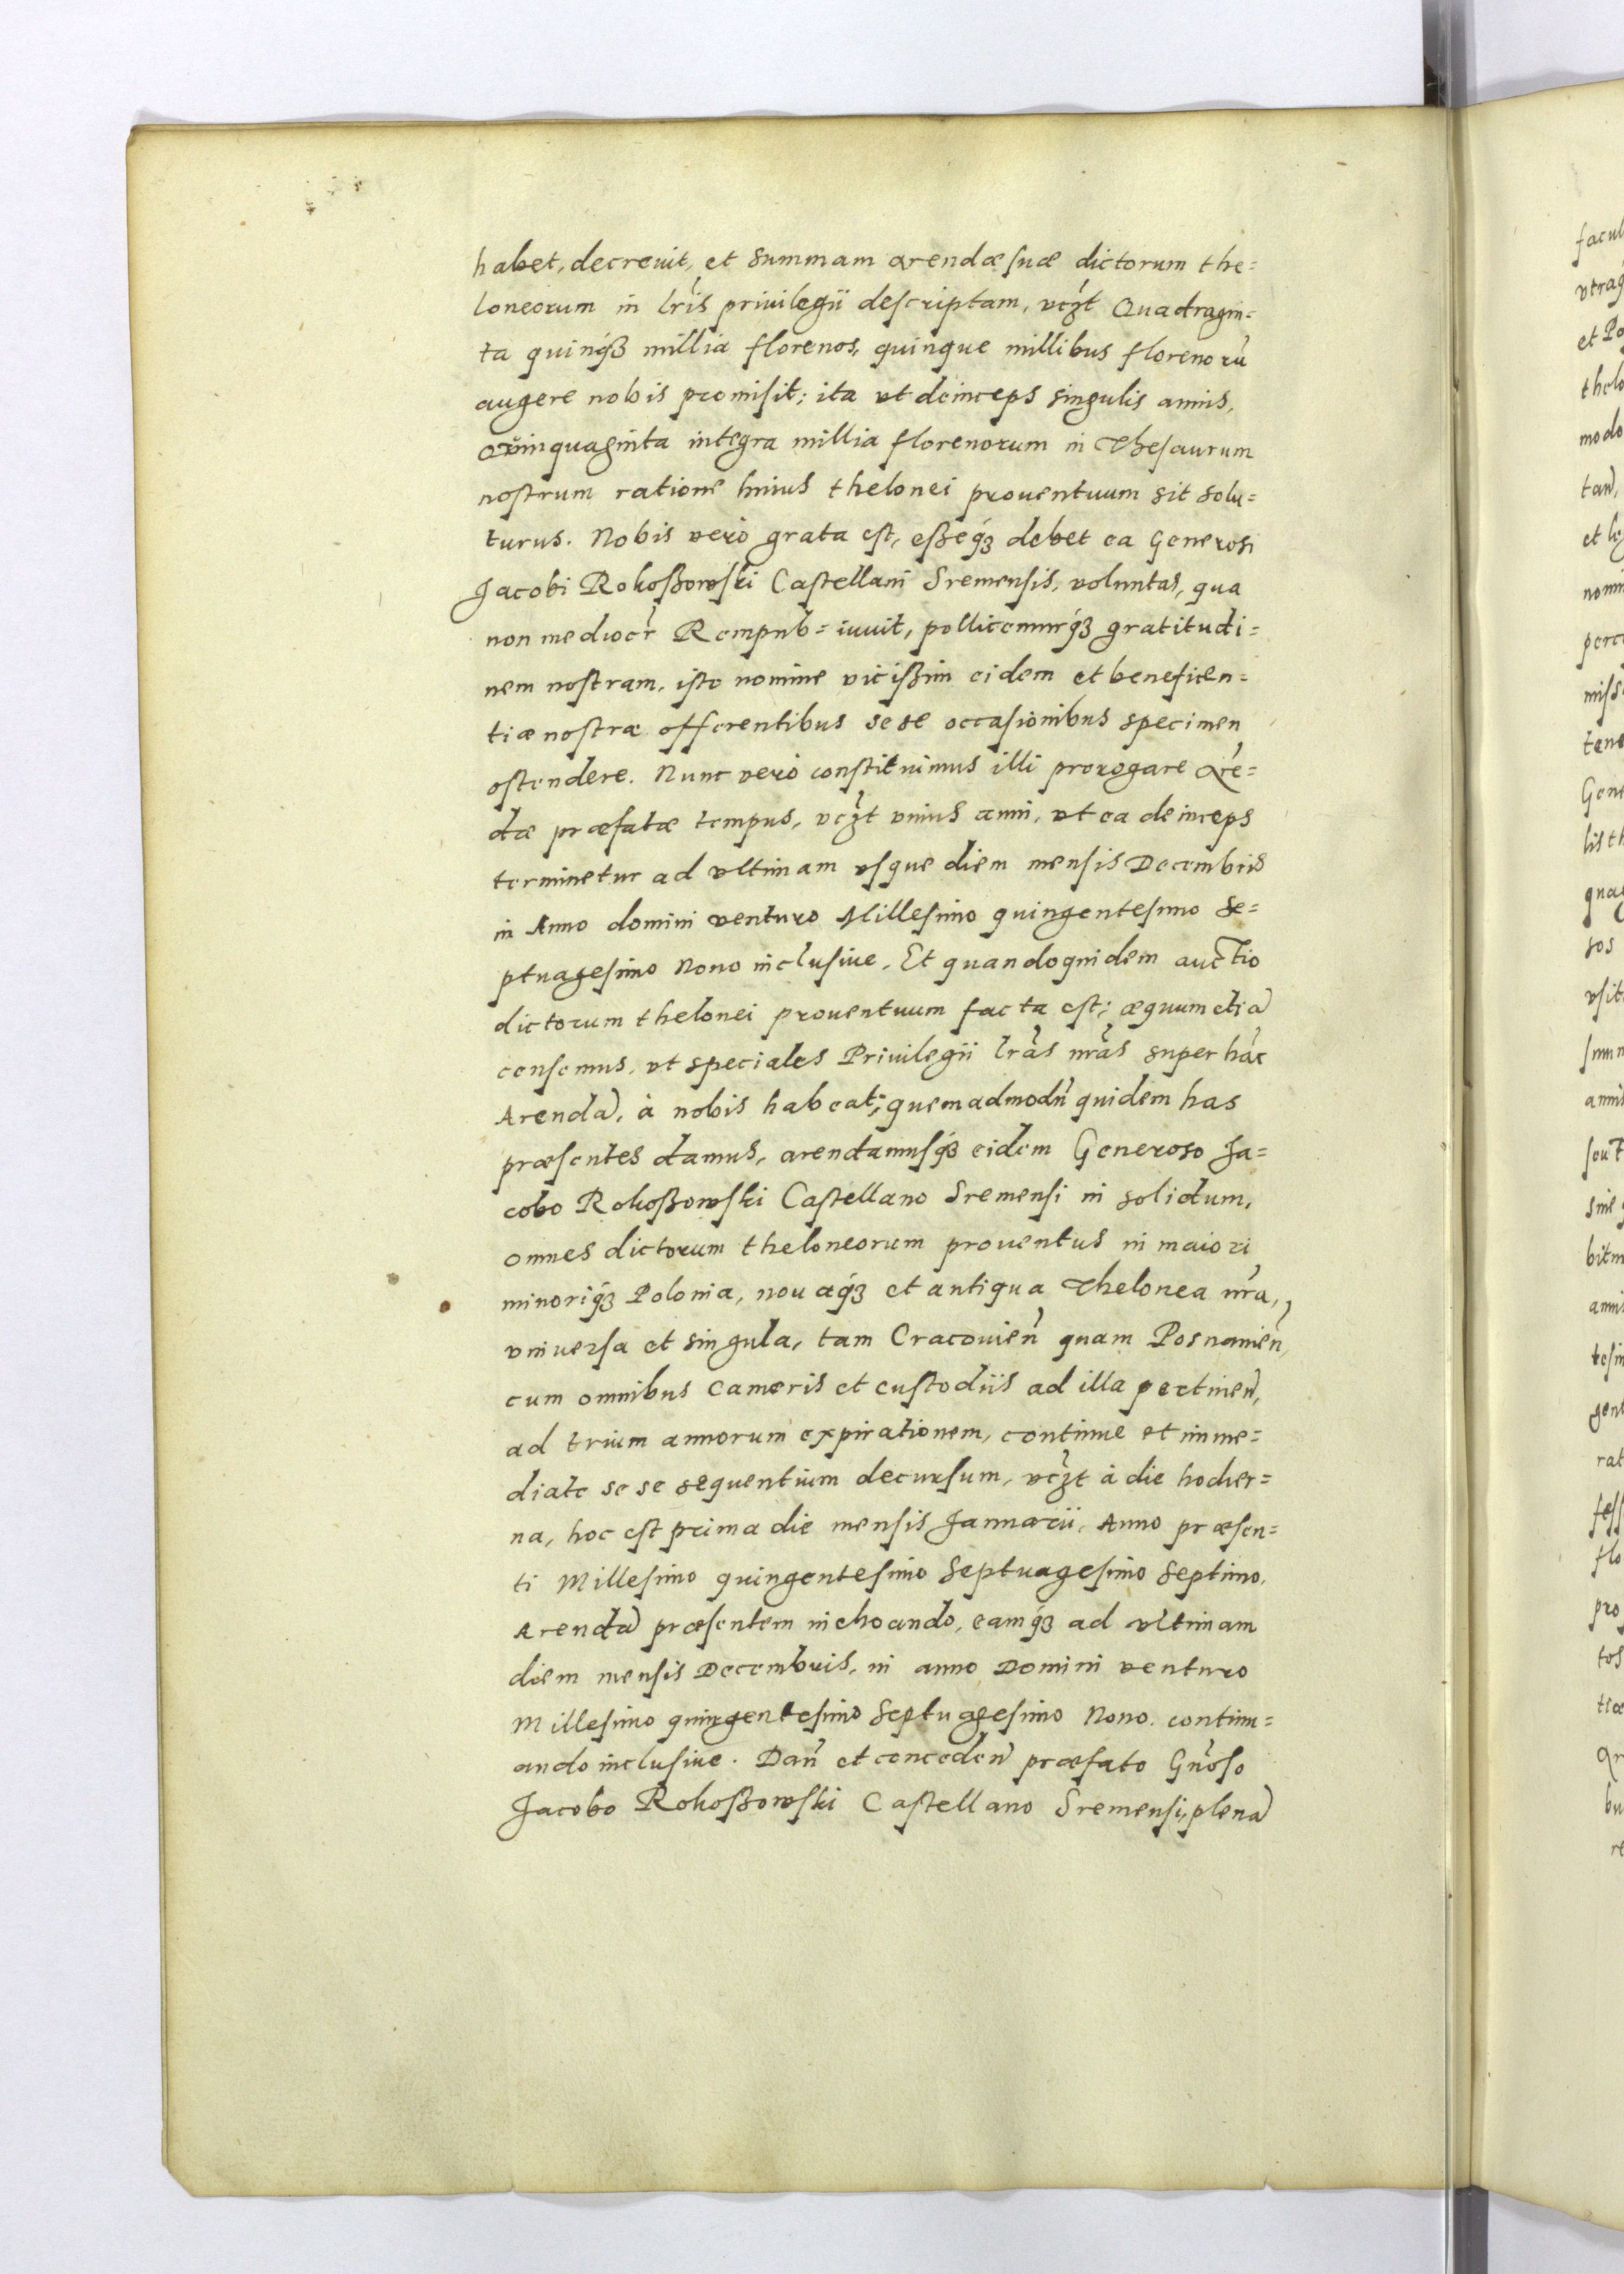 habet, decreuit, et Summam arendæ suæ dictorum the=
loneorum in lr̃is priuilegii descriptam, vcȝt Quadragin=
ta quinqȝ millia florenos, quinque millibus florenorũ
augere nobis promisit; ita vt deinceps singulis annis,
Quinquaginta integra millia florenorum in Thesaurum
nostrum ratione huius thelonei prouentuum sit solu=
turus. Nobis verò grata est, eßeqȝ debet ea Generosi
Jacobi Rokoßowski Castellani Sremensis, voluntas, qua
non mediocr̃ Rempub= iuuit, pollicemurqȝ gratitudi=
nem nostram, isto nomine vicißim eidem et beneficen=
tiæ nostræ offerentibus sese occasionibus specimen
ostendere. Nunc verò constituimus illi prorogare Arẽ=
dæ præfatæ tempus, vcȝt vnius anni, vt ea deinceps
terminetur ad vltimam vsque diem mensis Decembris
in Anno domini venturo Millesimo quingentesimo Se=
ptuagesimo Nono inclusiue. Et quandoquidem auctio
dictorum thelonei prouentuum facta est; æquum etiã
censemus, vt speciales Priuilegii lr̃as nr̃as super hãc
Arendã, à nobis habeat; quemadmodũ quidem has
præsentes damus, arendamusqȝ eidem Generoso Ja=
cobo Rokoßowski Castellano Sremensi in solidum,
omnes dictorum theloneorum prouentus in maiori
minoriqȝ Polonia, nouaqȝ et antiqua Thelonea nr̃a,
vniuersa et singula, tam Cracouien̄ quam Posnanien̄,
cum omnibus Cameris et custodiis ad illa pertinen̄,
ad trium annorum expirationem, continue et imme=
diate se se sequentium decursum, vcȝt à die hodier=
na, hoc est prima die mensis Januarii, Anno præsen=
ti Millesimo quingentesimo Septuagesimo Septimo,
Arendã præsentem inchoando, eamqȝ ad vltimam
diem mensis Decembris, in anno Domini venturo
Millesimo quingentesimo Septuagesimo Nono. continu=
ando inclusiue. Dan̄ et conceden̄ præfato Gñoso
Jacobo Rokoßowski Castellano Sremensi, plenã